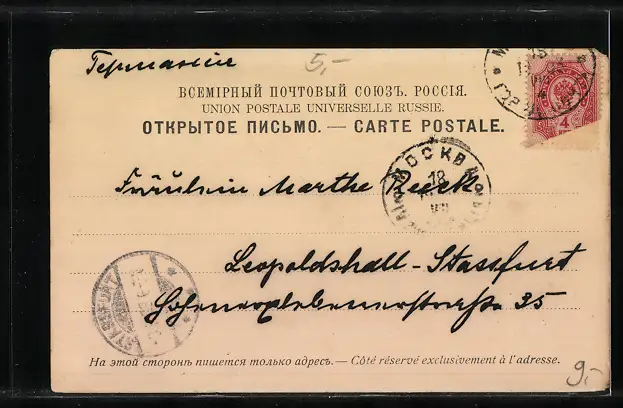 Германія
5,-
ВСЕМІРНЫЙ ПОЧТОВЫЙ СОЮЗЪ. РОССІЯ.
UNION POSTALE UNIVERSELLE RUSSIE.
ОТКРЫТОЕ ПИСЬМО. — CARTE POSTALE.
4
МОСКВА
18
Fräulein Marthe Reeck
Leopoldshall-Stassfurt
Hohenerxlebenerstraße 35
STASSFURT
На этой сторонѣ пишется только адресъ. — Côté réservé exclusivement à l'adresse.
9,-